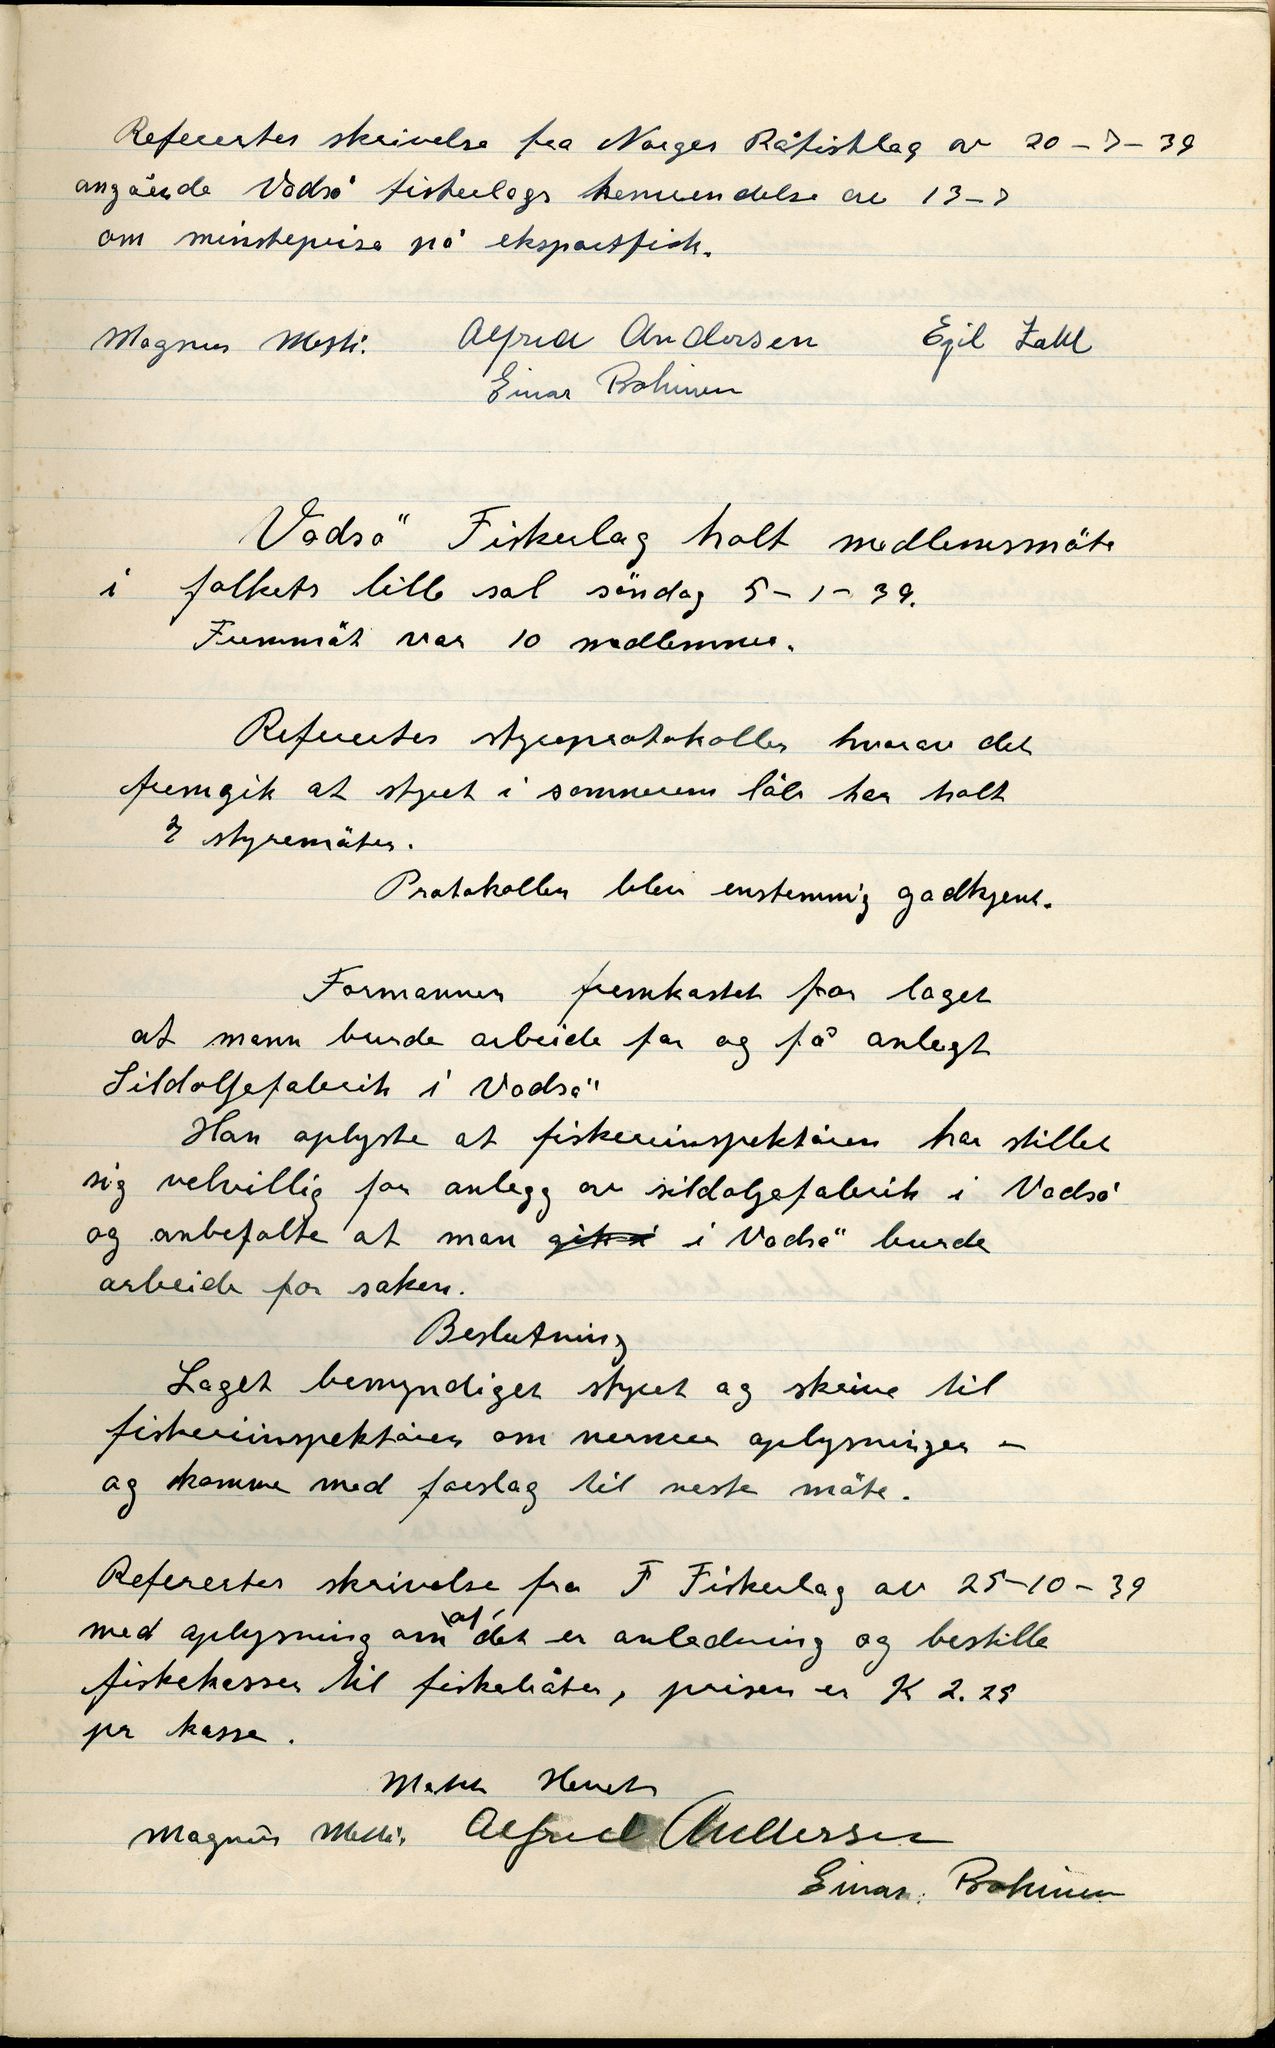 Referertes skrivelse fra Norges Råfisklag av 20-7-39
angående Vadsø fiskerlags henvendelse av 13-7
om minstepriser på eksportfisk.
Magnus Alfred Andersen Egil Zahl
Einar
Vadsö Fiskerlag holt medlemsmöte
i folkets lille sal söndag 5-1-39.
Fremmöt var 10 medlemmer.
Refertes styreprotokollen hvorav det
fremgik at styret i sommerens löb har holt
7 styremöter.
Protokollen blev enstemmig godkjent.
Formannen fremkastet for laget
at mann burde arbeide for og få anlegt
Sildoljefabrik i Vadsö
Han oplyste at fiskeriinspektören har stillet
sig velvillig for anlegg av sildoljefabrik i Vadsö
og anbefalte at man i Vadsö burde
arbeide for saken.
Beslutning
Laget bemyndiget styret og skrive til
fiskeriinspektören om nermere oplysninger –
og komme med forslag til neste möte.
Referertes skrivelse fra F Fiskerlag av 25-10-39
med oplysning om at det er anledning og bestille
fiskekasser til fiskebåter, prisen er K 2.25
pr kasse.
Magnus Alfred Andersen
Einar